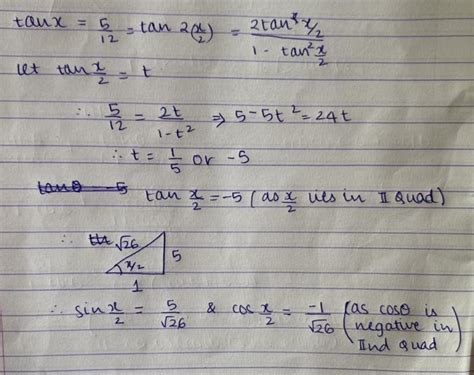 tan x = 5/12 = tan 2(x/2) = 2tan x/2 / 1 - tan² x/2
let tan x/2 = t
∴ 5/12 = 2t/1-t² ⇒ 5-5t² = 24t
∴ t = 1/5 or -5
tanθ = -5 tan x/2 = -5 (as x/2 lies in II Quad)
∴ √26 5
x/2
1
∴ sin x/2 = 5/√26 & cos x/2 = -1/√26 (as cosθ is negative in IInd quad)